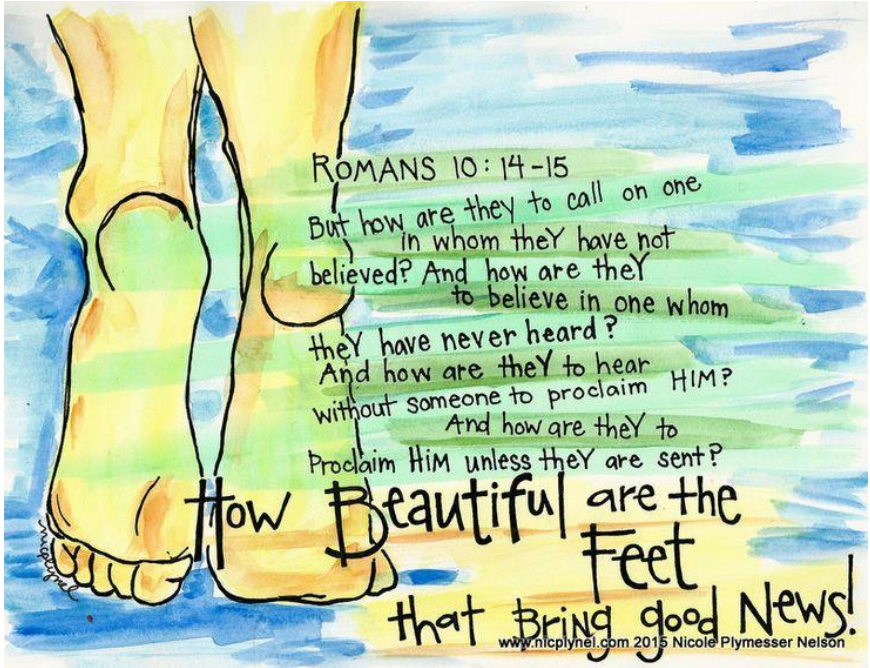 ROMANS 10:14-15
But how are they to call on one
in whom they have not
believed? And how are they
to believe in one whom
they have never heard?
And how are they to hear
without someone to proclaim HIM?
And how are they to
Proclaim HIM unless they are sent?
How Beautiful are the
Feet
that Bring good News!
nicplynel
www.nicplynel.com 2015 Nicole Plymesser Nelson